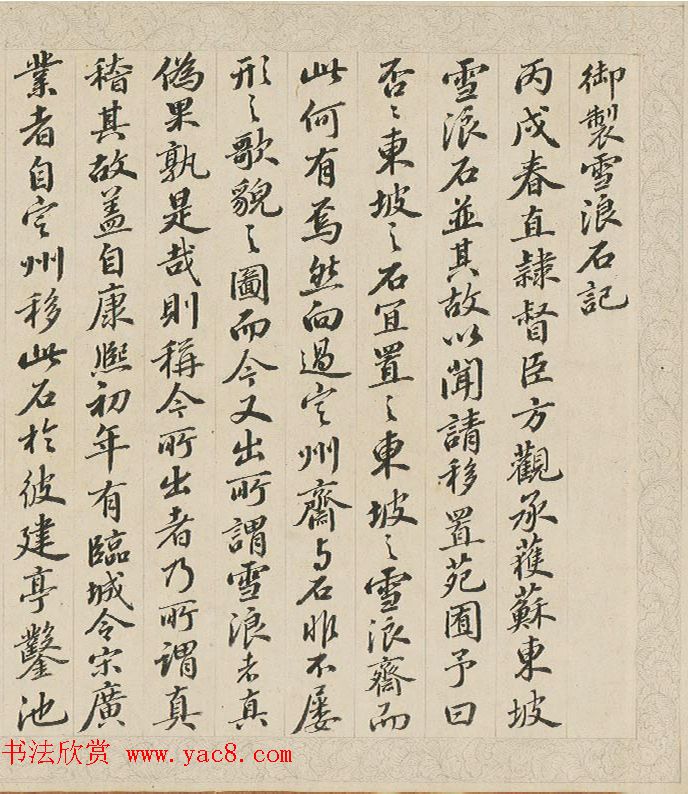 御製雪浪石記
丙戌春直隸督臣方觀承蒦蘇東坡
雪浪石並其故以聞請移置苑囿予曰
否〻東坡之石宜置之東坡之雪浪齋而
此何有焉然向過定州齋与石非不屡
形之歌貌之圖而今又出所謂雪浪者真
偽果孰是哉則稱今所出者乃所謂真
稽其故盖自康熙初年有臨城令宋廣
業者自定州移此石於彼建亭鑿池
书法欣赏 www.yac8.com